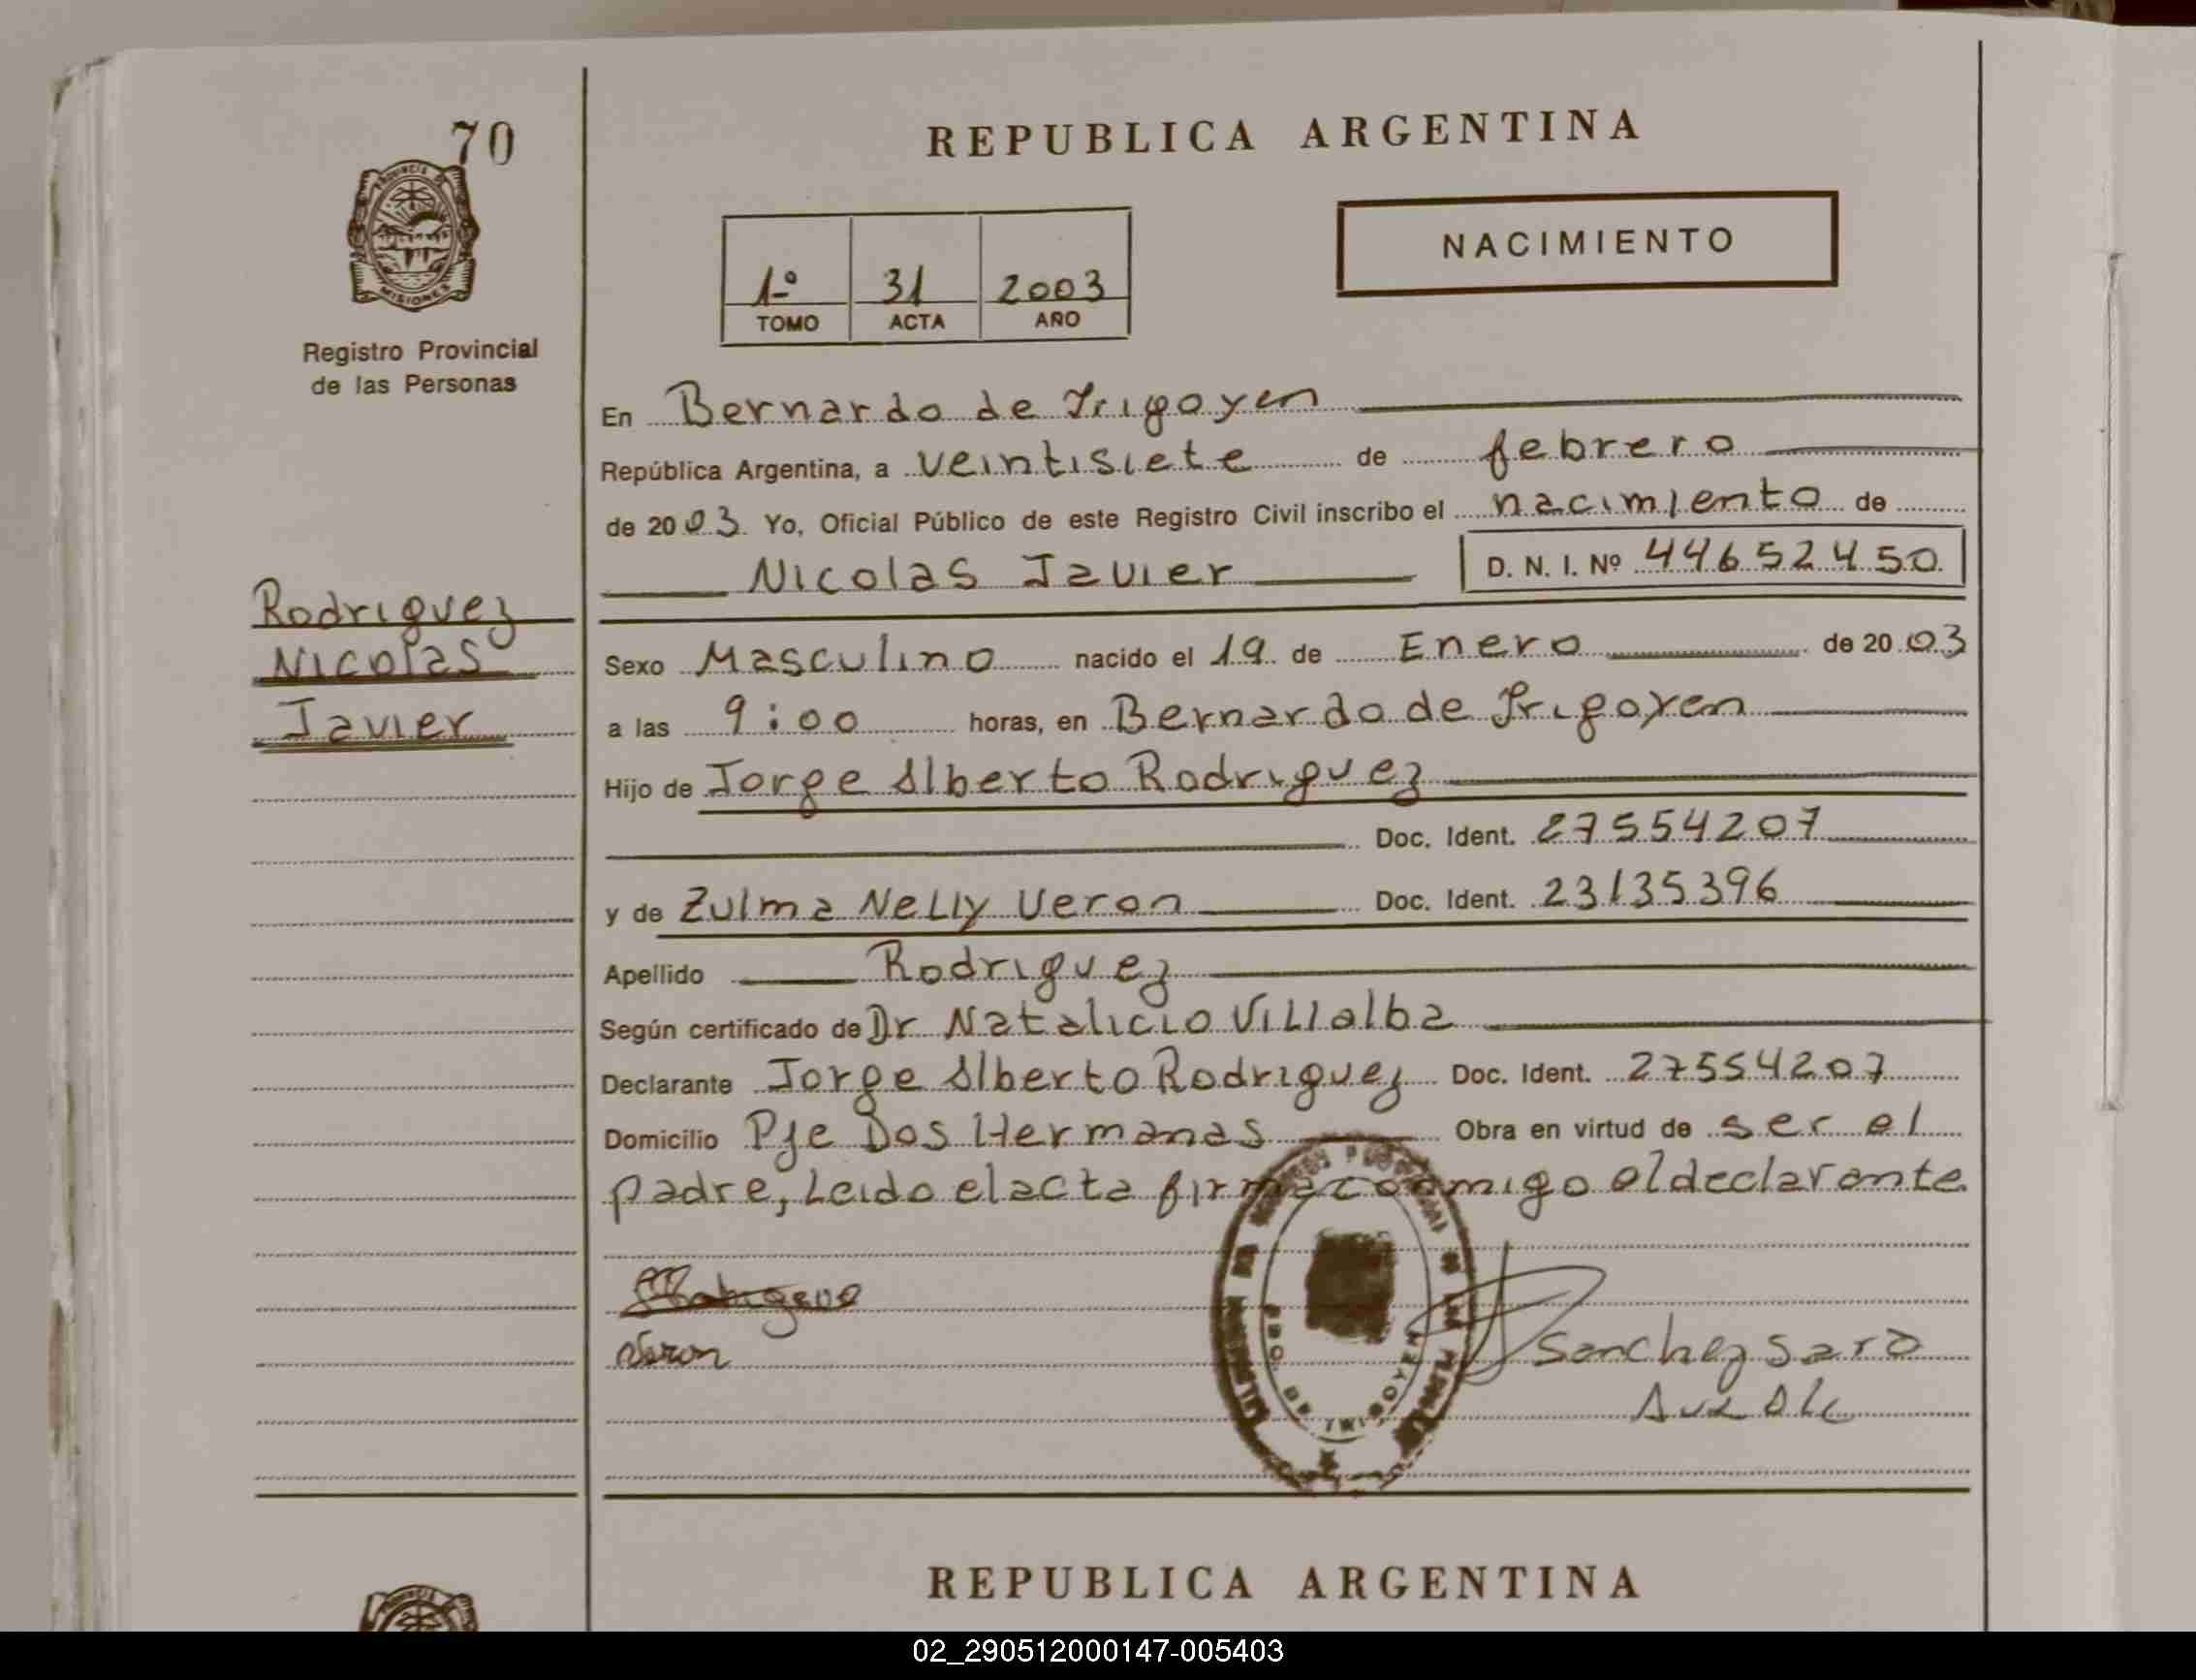 70
PROVINCIA DE
MISIONES
Registro Provincial
de las Personas
Rodriguez
Nicolas
Javier
REPUBLICA ARGENTINA
1º 31 2003
TOMO ACTA AÑO
NACIMIENTO
En Bernardo de Irigoyen
República Argentina, a veintisiete de febrero
de 2003. Yo, Oficial Público de este Registro Civil inscribo el nacimiento de
Nicolas Javier D. N. I. Nº 44652450
Sexo Masculino nacido el 19 de Enero de 2003
a las 9:00 horas, en Bernardo de Irigoyen
Hijo de Jorge Alberto Rodriguez
Doc. Ident. 27554207
y de Zulma Nelly Veron Doc. Ident. 23135396
Apellido Rodriguez
Según certificado de Dr Natalicio Villalba
Declarante Jorge Alberto Rodriguez Doc. Ident. 27554207
Domicilio Pje Dos Hermanas Obra en virtud de ser el
padre, Leido el acta firma conmigo el declarante
Veron
Sanchez Sara
REPUBLICA ARGENTINA
02_290512000147-005403